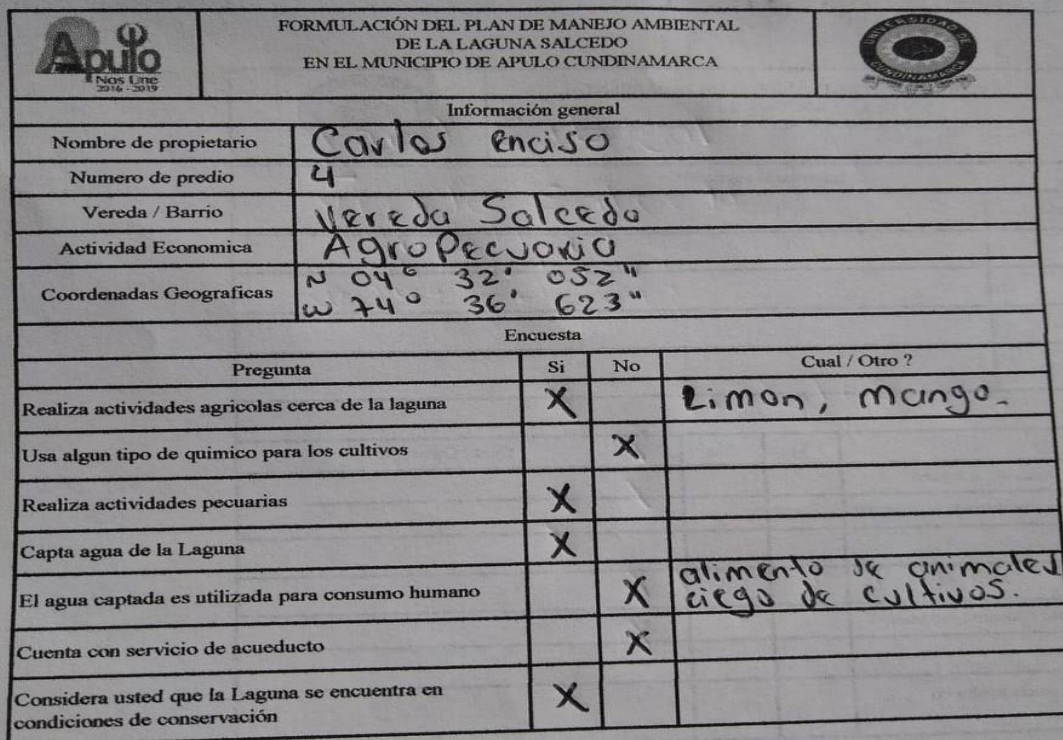 Apulo
Nos Une
2016 - 2019
FORMULACIÓN DEL PLAN DE MANEJO AMBIENTAL
DE LA LAGUNA SALCEDO
EN EL MUNICIPIO DE APULO CUNDINAMARCA
UNIVERSIDAD DE
CUNDINAMARCA
Información general
Nombre de propietario Carlos enciso
Numero de predio 4
Vereda / Barrio Vereda Salcedo
Actividad Economica AgroPecuaria
Coordenadas Geograficas
N 04° 32' 052"
W 74° 36' 623"
Encuesta
Pregunta Si No Cual / Otro ?
Realiza actividades agricolas cerca de la laguna X Limon, mango.
Usa algun tipo de quimico para los cultivos X
Realiza actividades pecuarias X
Capta agua de la Laguna X
El agua captada es utilizada para consumo humano X alimento de animales
riego de cultivos.
Cuenta con servicio de acueducto X
Considera usted que la Laguna se encuentra en
condiciones de conservación X